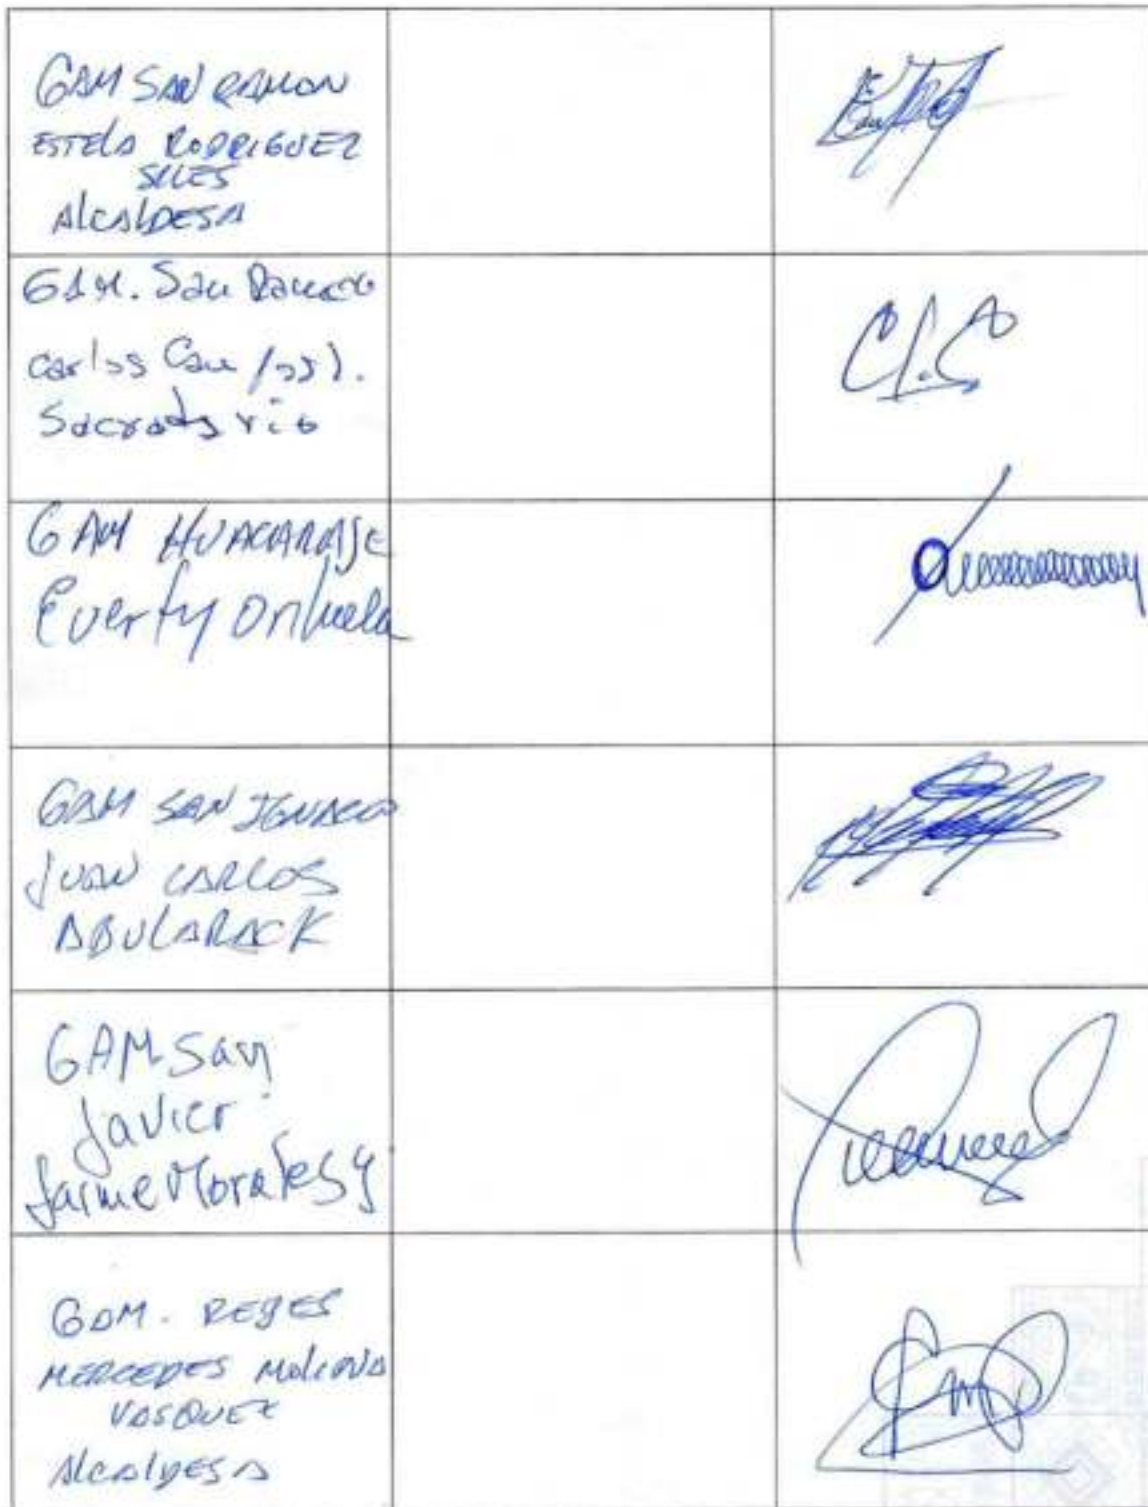 GAM SAN RAMON
ESTELA RODRIGUEZ
SILES
AlcAlDESA
GAM. San Ramon
Carlos
Secretario
GAM HUACARAJE
Everty Orihuela
GAM SAN IGNACIO
JUAN CARLOS
ABULARACK
GAM San
Javier
Jaime Morales
GAM. REYES
MERCEDES MOLINA
VASQUEZ
AlcAlDESA